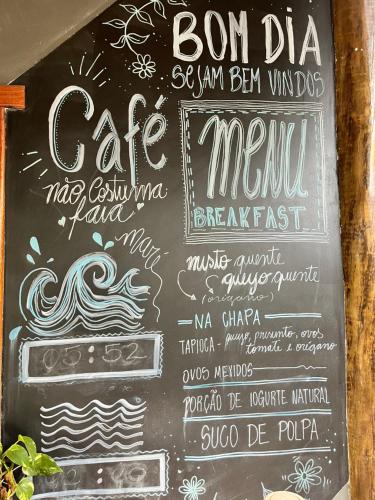 BOM DIA
SEJAM BEM VINDOS
Café
não Costuma
faiá
MENU
BREAKFAST
Maré
05:52
misto quente
queijo quente
(orégano)
NA CHAPA
TAPIOCA - queijo, presunto, ovos
tomate e orégano
OVOS MEXIDOS
PORÇÃO DE IOGURTE NATURAL
SUCO DE POLPA